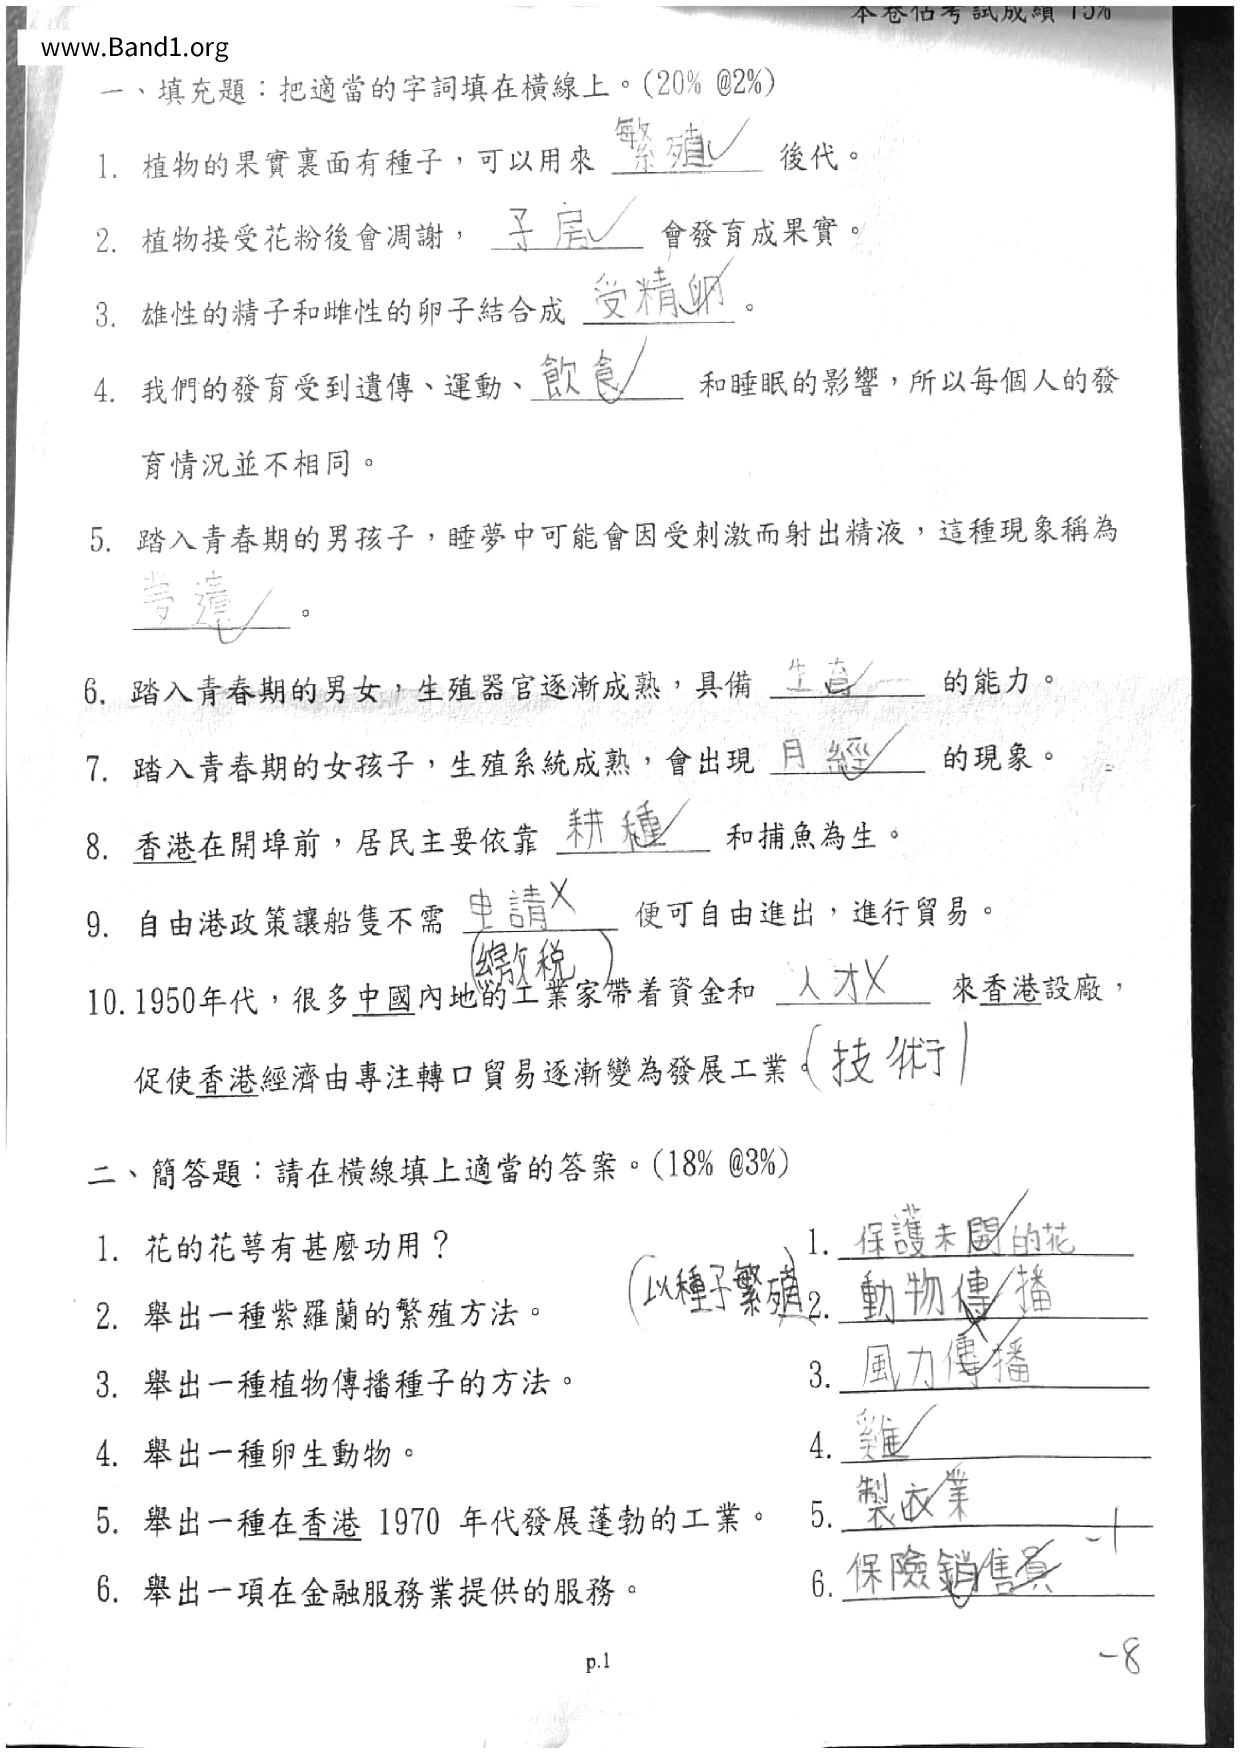 本卷佔考試成績 15%
www.Band1.org
一、填充題：把適當的字詞填在橫線上。(20% @2%)
1. 植物的果實裏面有種子，可以用來 繁殖 後代。
2. 植物接受花粉後會凋謝， 子房 會發育成果實。
3. 雄性的精子和雌性的卵子結合成 受精卵 。
4. 我們的發育受到遺傳、運動、 飲食 和睡眠的影響，所以每個人的發
育情況並不相同。
5. 踏入青春期的男孩子，睡夢中可能會因受刺激而射出精液，這種現象稱為
夢遺 。
6. 踏入青春期的男女，生殖器官逐漸成熟，具備 生育 的能力。
7. 踏入青春期的女孩子，生殖系統成熟，會出現 月經 的現象。
8. 香港在開埠前，居民主要依靠 耕種 和捕魚為生。
9. 自由港政策讓船隻不需 申請 便可自由進出，進行貿易。
(繳稅)
10. 1950年代，很多中國內地的工業家帶着資金和 人才 來香港設廠，
促使香港經濟由專注轉口貿易逐漸變為發展工業。(技術)
二、簡答題：請在橫線填上適當的答案。(18% @3%)
1. 花的花萼有甚麼功用？ 1. 保護未開的花
2. 舉出一種紫羅蘭的繁殖方法。 (以種子繁殖) 2. 動物傳播
3. 舉出一種植物傳播種子的方法。 3. 風力傳播
4. 舉出一種卵生動物。 4. 雞
5. 舉出一種在香港 1970 年代發展蓬勃的工業。 5. 製衣業
-1
6. 舉出一項在金融服務業提供的服務。 6. 保險銷售員
p.1
-8